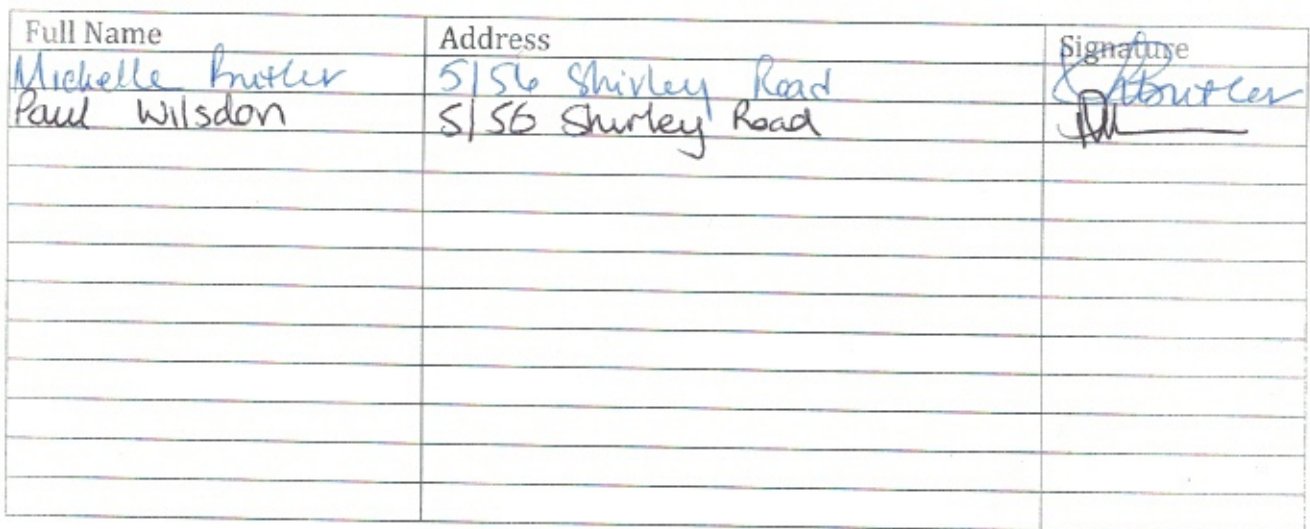 Full Name Address Signature
Michelle Butler 5/56 Shirley Road Butler
Paul Wilsdon 5/56 Shirley Road